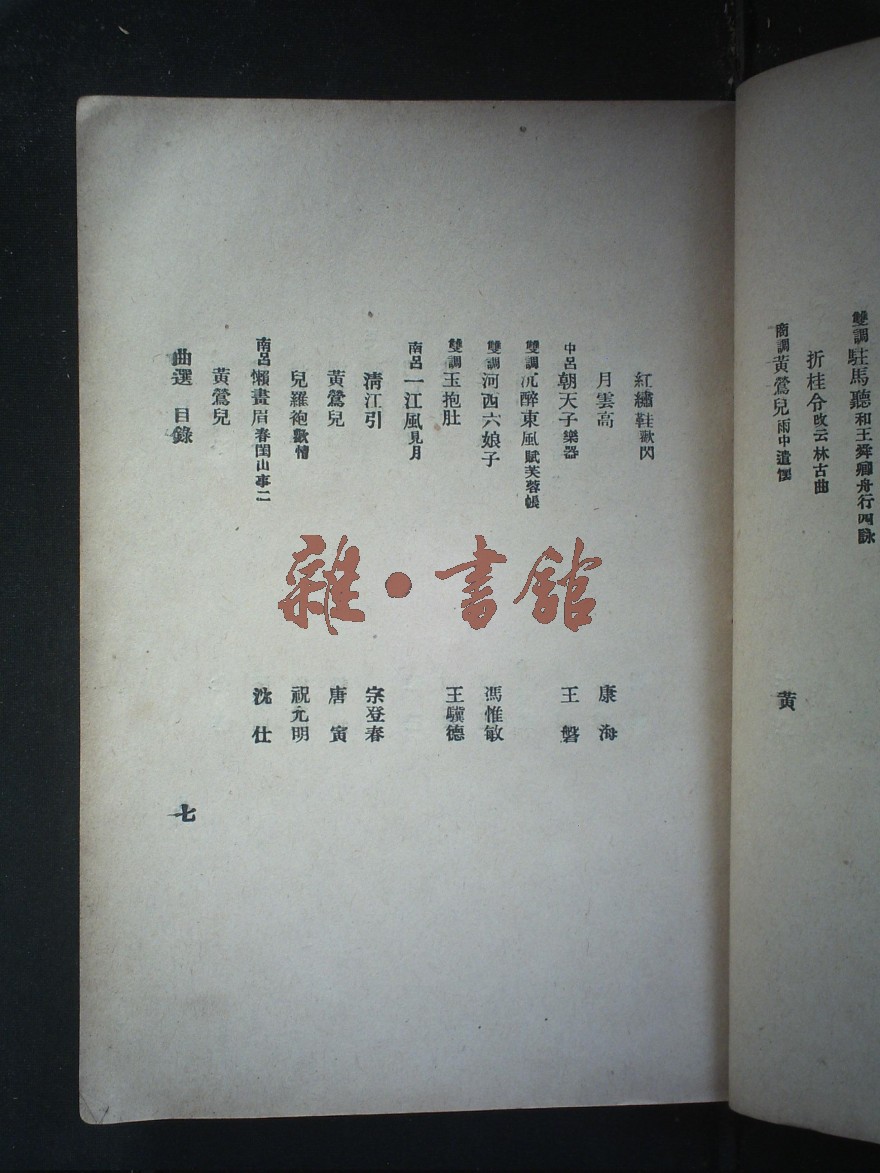 雙調駐馬聽和王舜卿舟行四詠
折桂令改云林古曲
商調黃鶯兒雨中遣懷 黄
紅繡鞋歡閃
月雲高 康海
中呂朝天子樂器 王磐
雙調沉醉東風賦芙蓉帳
雙調河西六娘子 馮惟敏
雙調玉抱肚 王驥德
南呂一江風見月
清江引 宗登春
黃鶯兒 唐寅
兒羅袍歡情 祝允明
南呂懶畫眉春閨山事二 沈仕
黃鶯兒
曲選 目錄 七
雜·書館